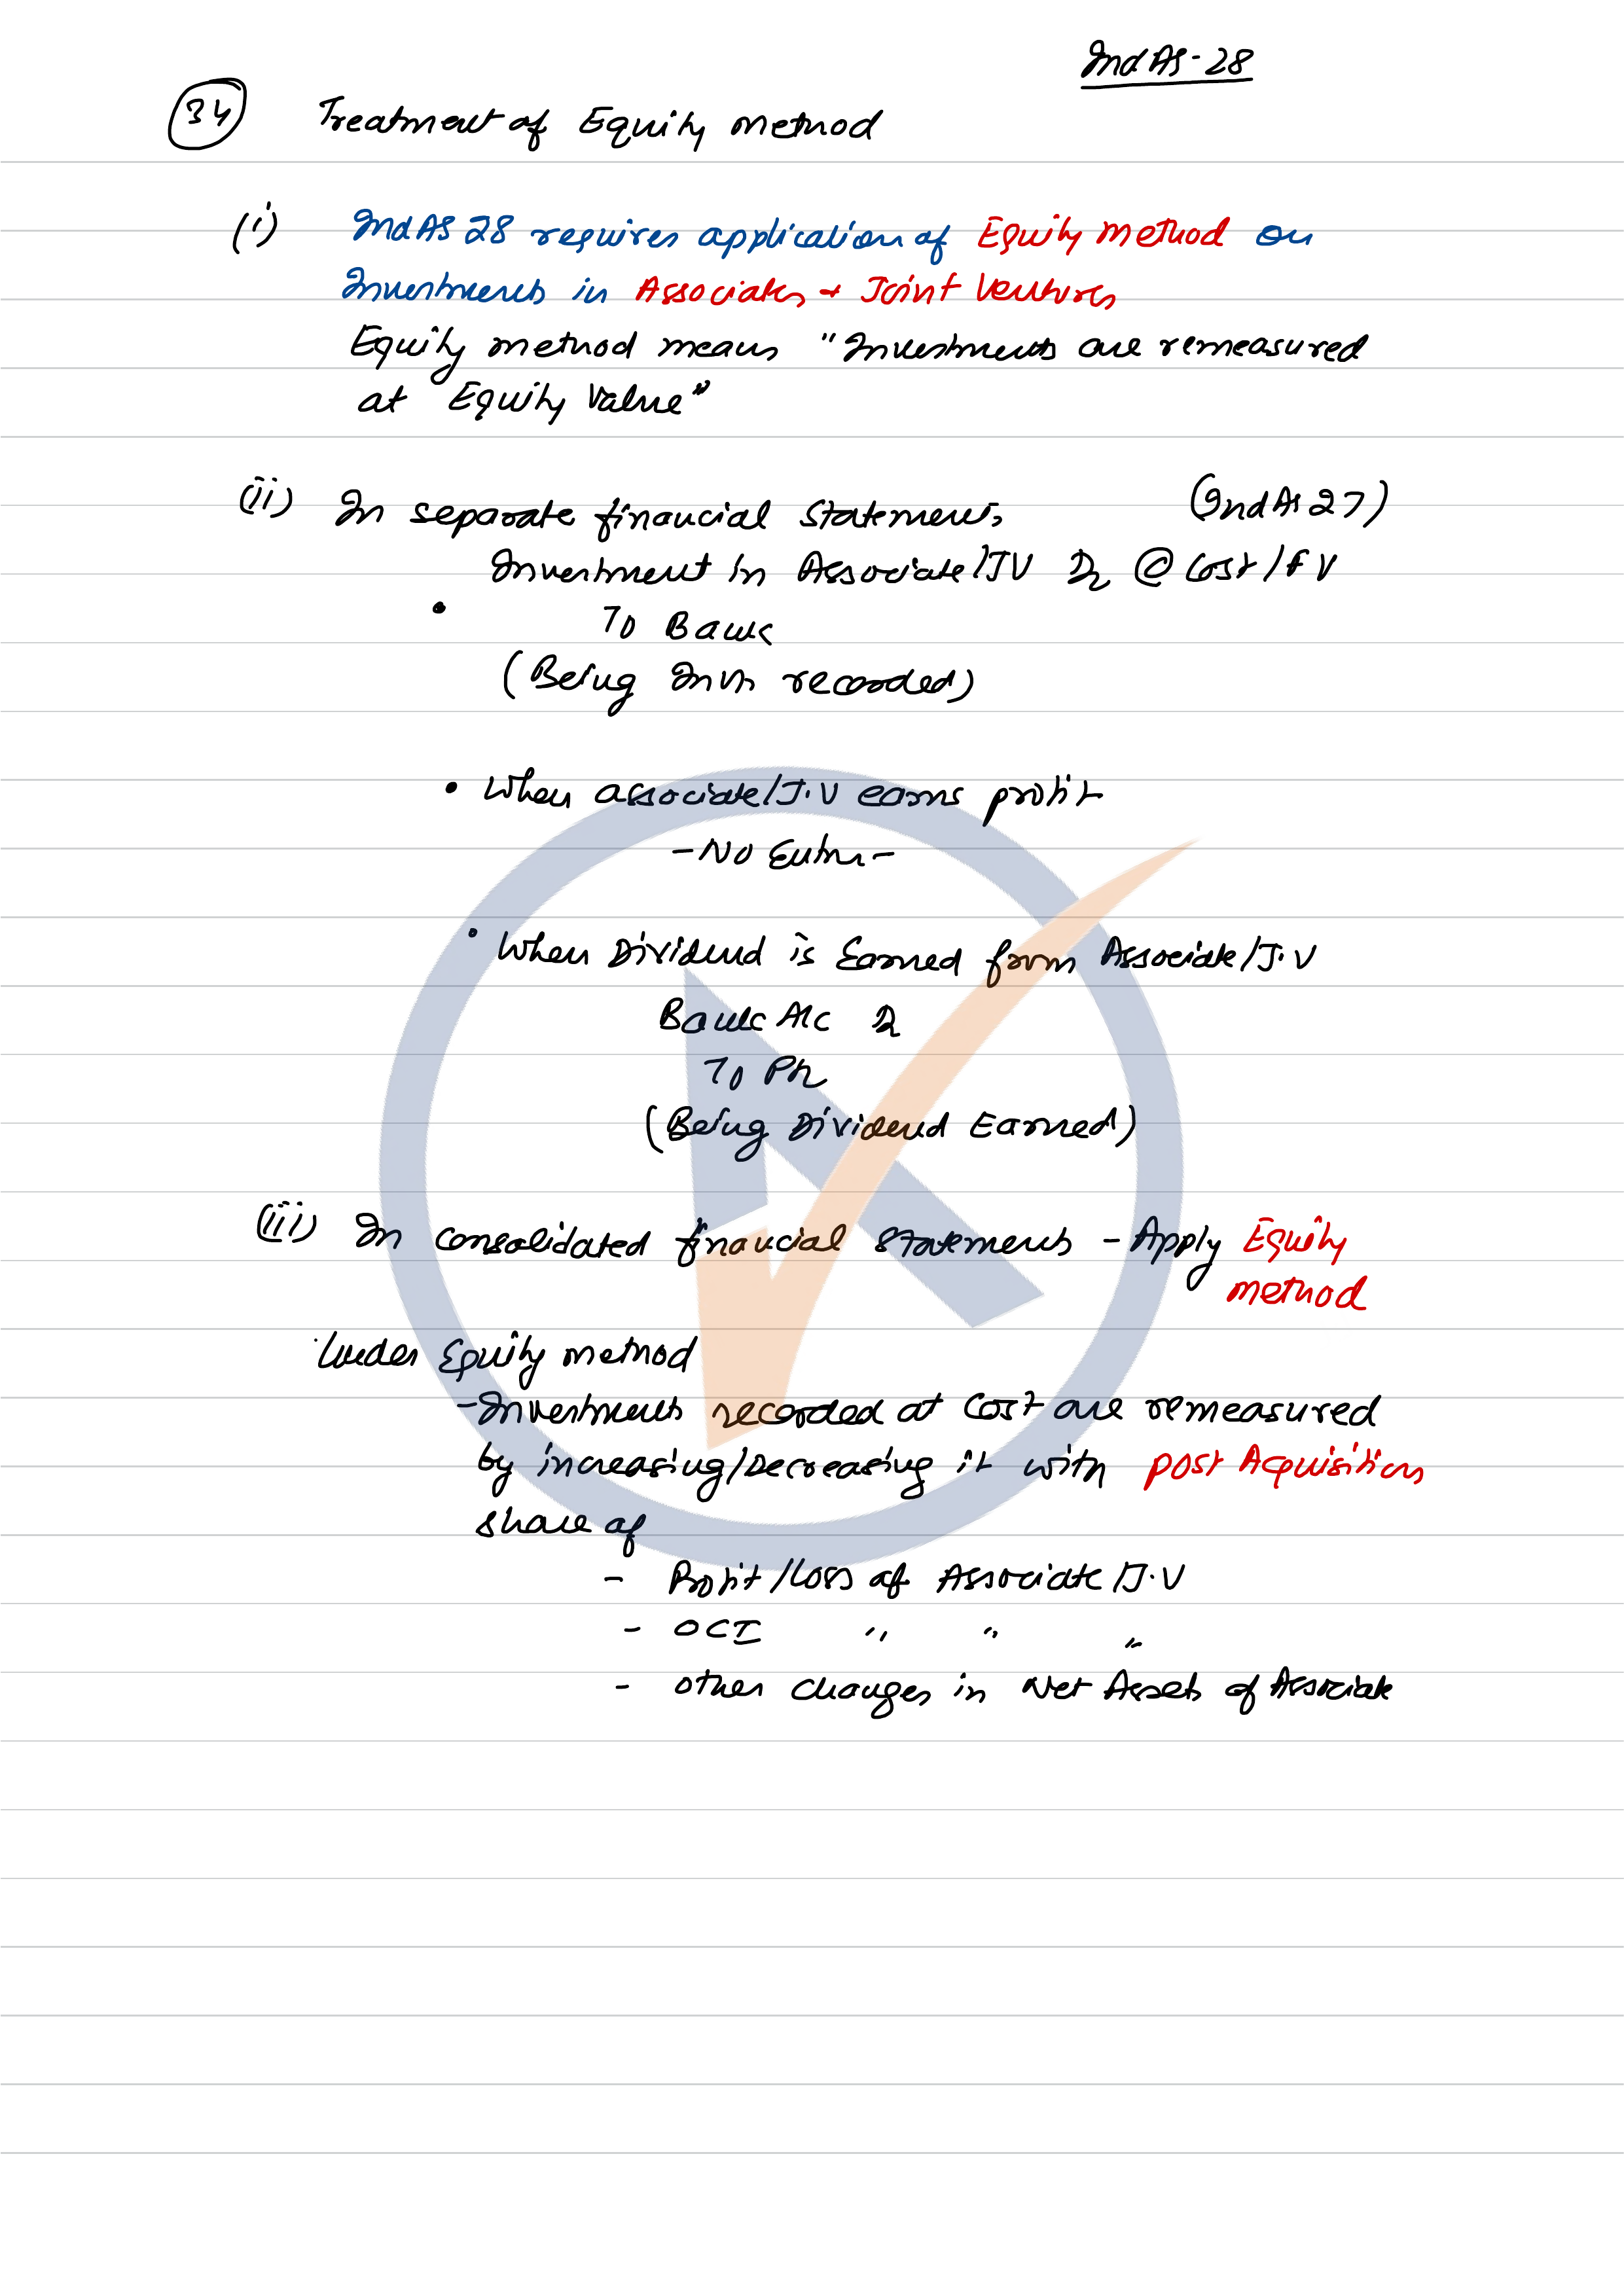 Ind AS-28
34 Treatment of Equity method
(i) Ind AS 28 requires application of Equity method on
Investments in Associates + Joint Ventures
Equity method means "Investments are remeasured
at "Equity Value"
(ii) In separate financial statements (Ind AS 27)
Investment in Associate/JV Dr @ Cost/FV
• To Bank
(Being Invt recorded)
• When associate/J.V earns profit
- No Entry -
• When Dividend is Earned from Associate/J.V
Bank A/c Dr
To P/L
(Being Dividend Earned)
(iii) In consolidated financial statements - Apply Equity
method
Under Equity method
- Investments recorded at Cost are remeasured
by increasing/Decreasing it with post Acquisition
share of
- Profit/Loss of Associate/J.V
- OCI " " "
- other changes in Net Assets of Associate